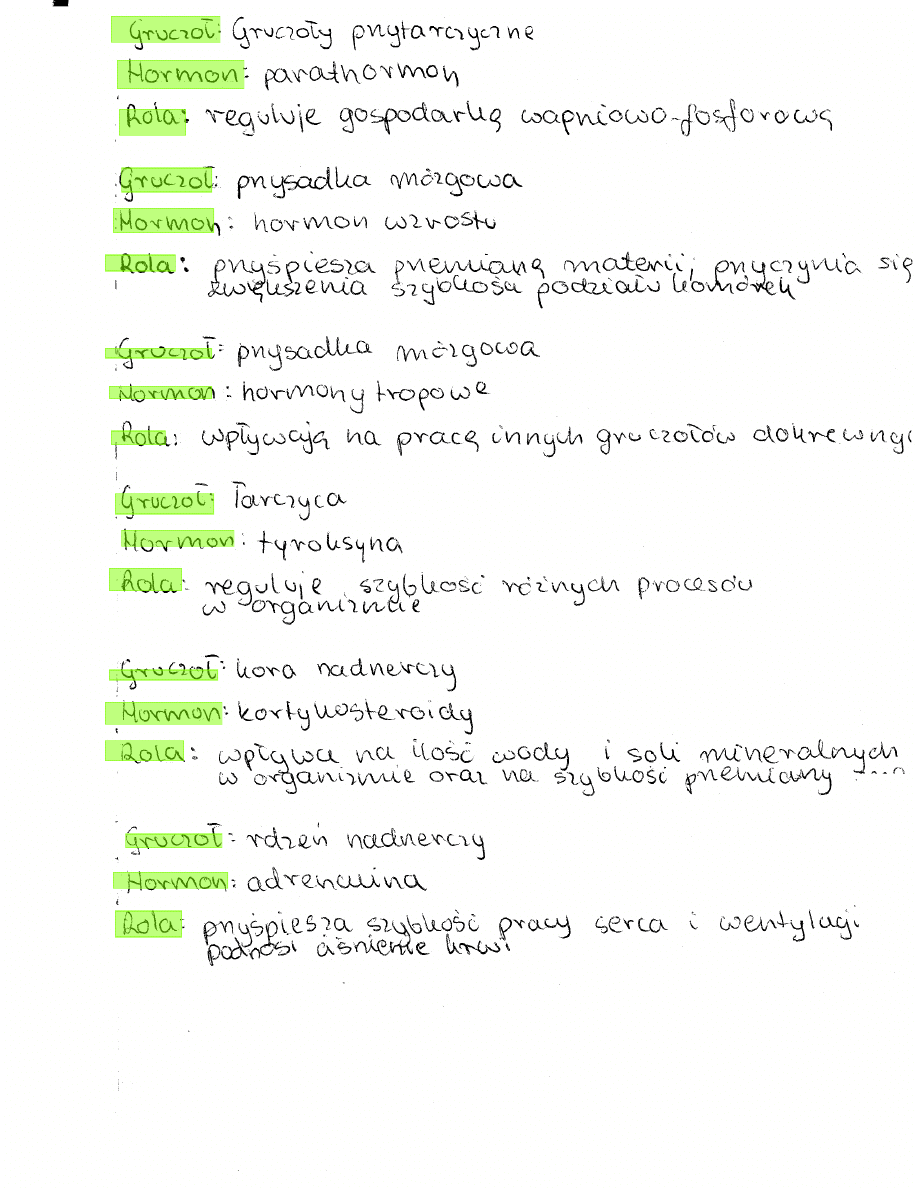 Gruczoł: Gruczoły przytarczyczne
Hormon: parathormon
Rola: reguluje gospodarkę wapniowo-fosforową
Gruczoł: przysadka mózgowa
Hormon: hormon wzrostu
Rola: przyśpiesza przemianę materii, przyczynia się
zwiększenia szybkości podziału komórek
Gruczoł: przysadka mózgowa
Hormon: hormony tropowe
Rola: wpływają na pracę innych gruczołów dokrewnyc
Gruczoł: Tarczyca
Hormon: tyroksyna
Rola: reguluje szybkość różnych procesów
w organizmie
Gruczoł: kora nadnerczy
Hormon: kortykosteroidy
Rola: wpływa na ilość wody i soli mineralnych
w organizmie oraz na szybkość przemiany
Gruczoł: rdzeń nadnerczy
Hormon: adrenalina
Rola: przyśpiesza szybkość pracy serca i wentylacji
podnosi ciśnienie krwi